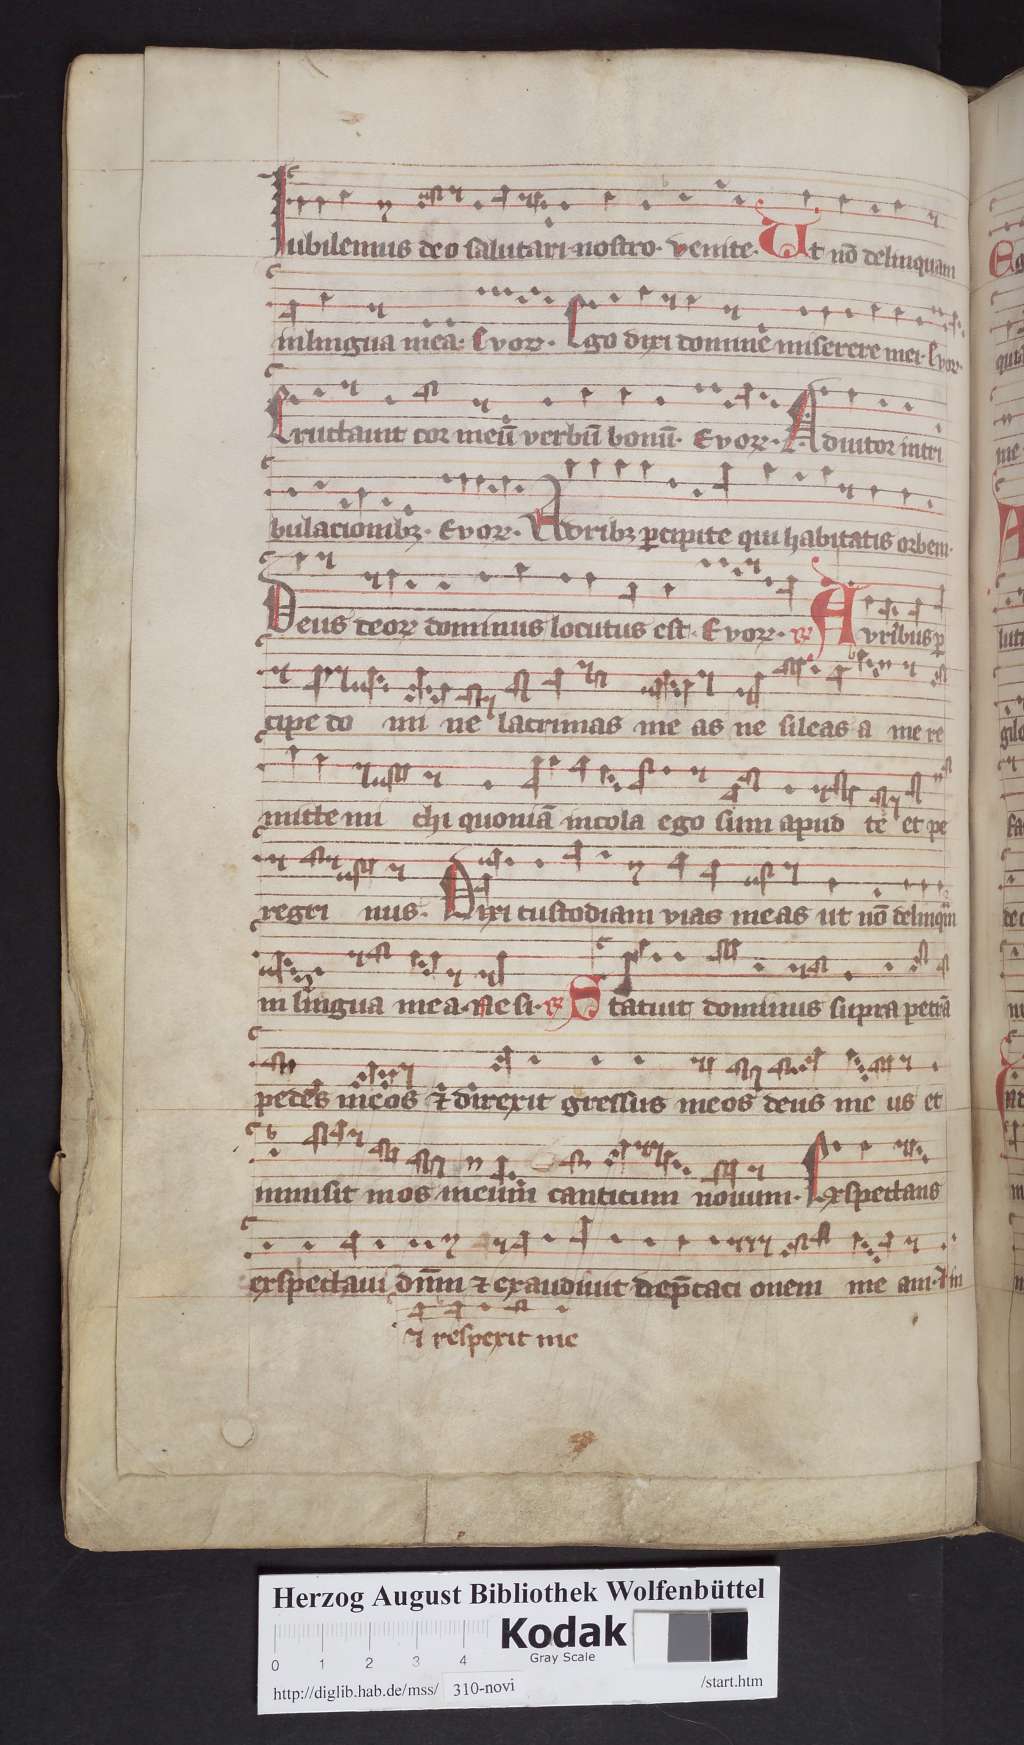 Iubilemus deo salutari nostro. venite. Ut nō delinquam
in lingua mea. Evoꝝ. Ego dixi domine miserere mei. Evoꝝ.
Eructauit cor meū verbū bonū. Evoꝝ. Adiutor in tri
bulacionibꝫ. Evoꝝ. Auribꝫ ꝑcipite qui habitatis orbem.
Deus deoꝝ dominus locutus est. Evoꝝ. ꝶ Auribus ꝑ
cipe do mi ne lacrimas me as ne sileas a me re
mitte mi chi quoniā incola ego sum apud te et pe
regri nus. Dixi custodiam vias meas ut nō delinquā
in lingua mea. Ne si. ꝶ Statuit dominus supra petrā
pedes meos ⁊ direxit gressus meos deus me us et
inmisit in os meum canticum nouum. Exspectans
exspectaui dn̄m ⁊ exaudiuit dep̄caci onem me am. ⁊ in
⁊ respexit me
Herzog August Bibliothek Wolfenbüttel
Kodak
Gray Scale
0 1 2 3 4
http://diglib.hab.de/mss/ 310-novi /start.htm